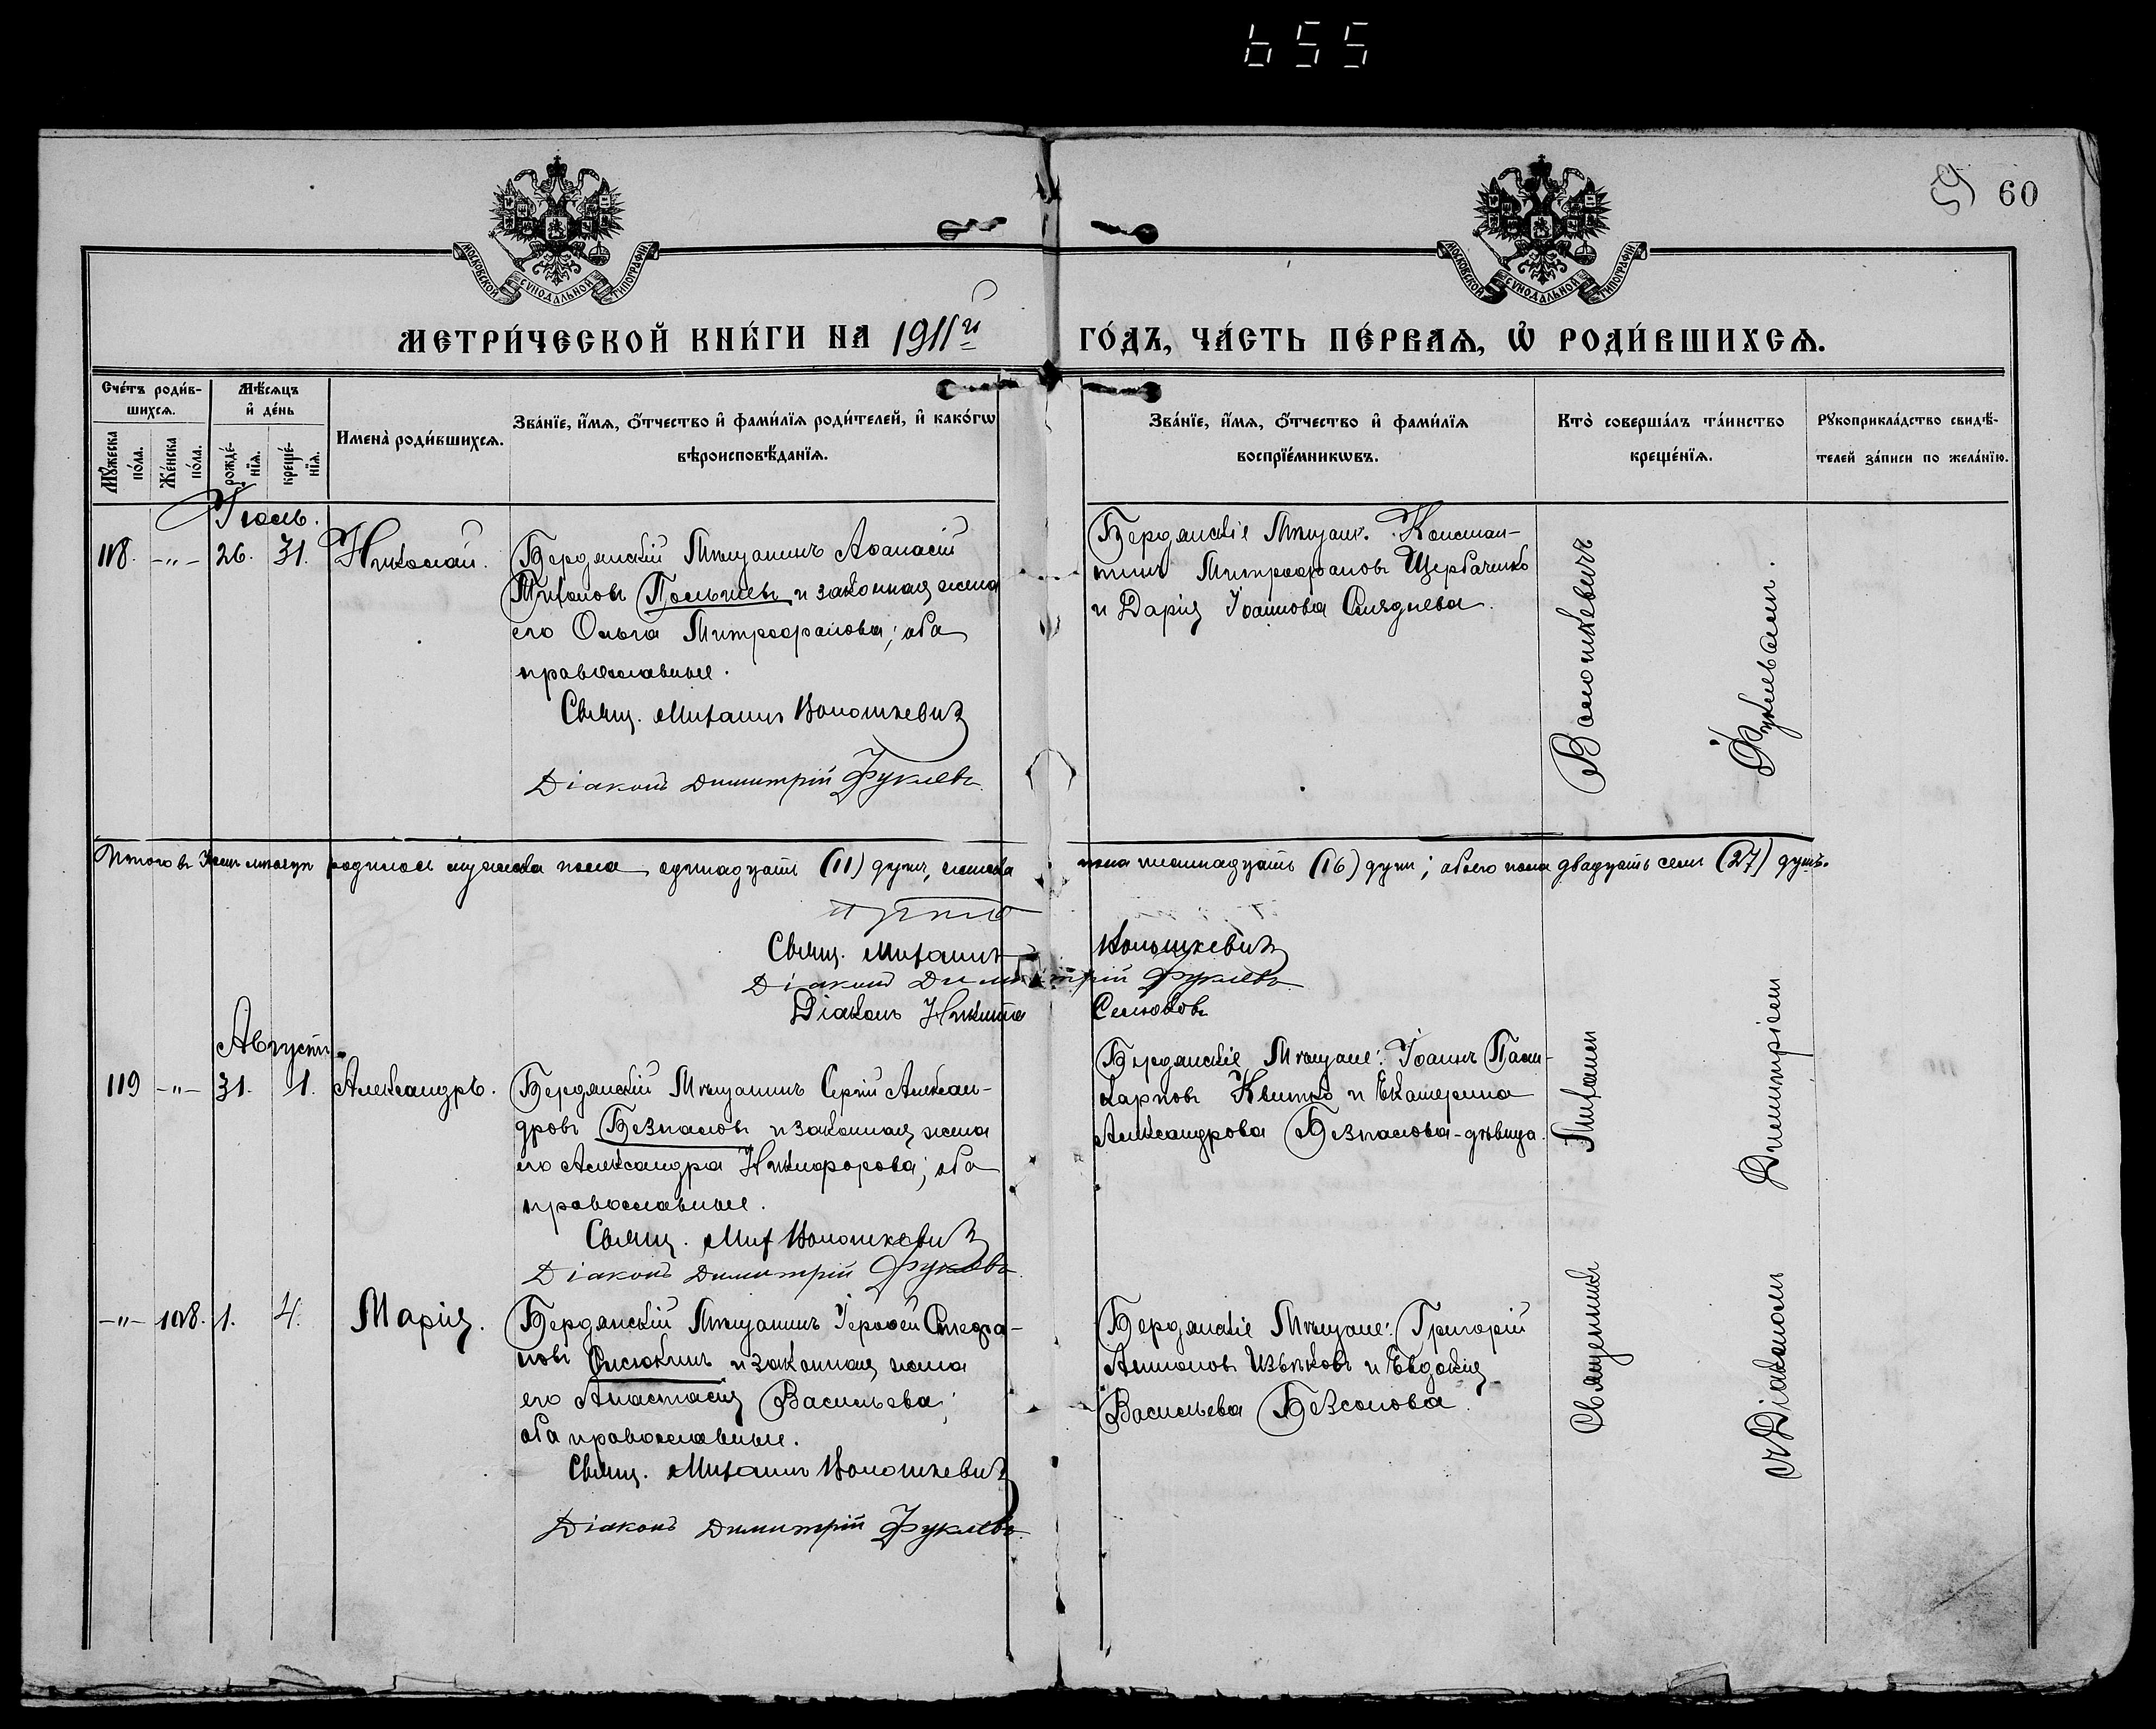 655
59 60
МОСКОВСКОЙ СѴНОДАЛЬНОЙ ТИПОГРАФІИ
МОСКОВСКОЙ СѴНОДАЛЬНОЙ ТИПОГРАФІИ
МЕТРИ́ЧЕСКОЙ КНИ́ГИ НА 1911й ГО́ДЪ, ЧА́СТЬ ПЕ́РВАѦ, Ѽ РОДИ́ВШИХСѦ.
Сче́тъ роди́в-
шихсѧ.
Мꙋ́жеска по́ла.
Же́нска по́ла.
Мѣ́сѧцъ
и҆ де́нь
рожде́-
нїѧ.
креще́-
нїѧ.
Имена̀ роди́вшихсѧ.
Зва́нїе, и҆́мѧ, ѻ҆́тчество и҆ фами́лїѧ роди́телей, и҆ како́гѡ
вѣроисповѣ́данїѧ.
Зва́нїе, и҆́мѧ, ѻ҆́тчество и҆ фами́лїѧ
воспрїе́мникѡвъ.
Кто̀ соверша́лъ та́инство
креще́нїѧ.
Рꙋкоприкла́дство свидѣ́-
телей за́писи по жела́нїю.
Іюль.
118. -"- 26. 31. Николай.
Бердянскій Мѣщанинъ Аѳанасій
Тихоновъ и законная жена
его Ольга Митрофанова; оба
православные.
Свящ. Михаилъ Волошкевич
Діаконъ Димитрій Фуклевъ
Бердянскіе Мѣщане: Констан-
тинъ Митрофановъ Щербаченко
и Дарія Іоаннова
Итого въ Іюлѣ мѣсяцѣ родилось мужеска пола одинадцать (11) душъ, женска пола шестнадцать (16) душъ; обоего пола двадцать семь (27) душъ.
Свящ. Михаилъ Волошкевич
Діаконъ Димитрій Фуклевъ
Діаконъ Никита Селюковъ
Августъ.
119 -"- 31. 1. Александръ.
Бердянскій Мѣщанинъ Сергій Алексан-
дровъ Безпаловъ и законная жена
его Александра Никифорова; оба
православные.
Свящ. Мих Волошкевич
Діаконъ Димитрій Фуклевъ
Бердянскіе Мѣщане: Іоаннъ
Квитко и Екатерина
Александрова Безпалова-дѣвица.
-"- 108. 1. 4. Марія.
Бердянскій Мѣщанинъ Іероѳей Стефа-
новъ и законная жена
его Анастасія Васильева;
оба православные.
Свящ. Михаилъ Волошкевич
Діаконъ Димитрій Фуклевъ
Бердянскіе Мѣщане: Григорій
Антоновъ и Евдокія
Васильева Безсонова.
Священникъ Михаилъ Волошкевичъ
съ Діакономъ Димитріемъ Фуклевымъ.